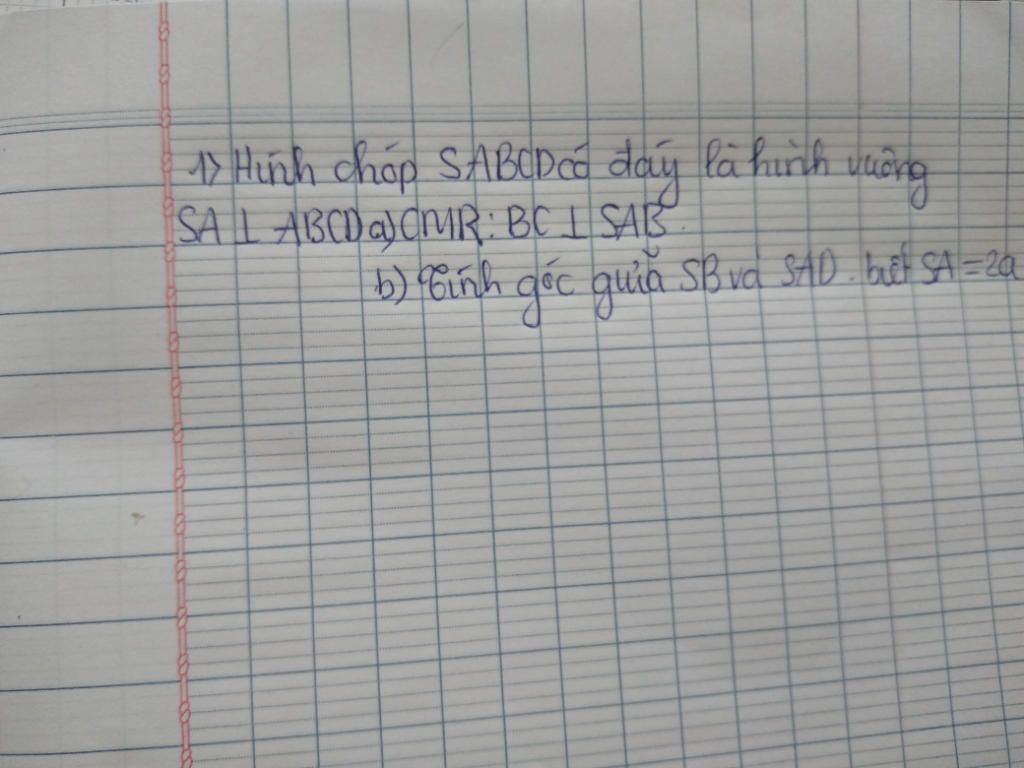 1) Hình chóp SABCD có đáy là hình vuông
SA ⊥ ABCD a) CMR: BC ⊥ SAB.
b) Tính góc giữa SB và SAD. biết SA = 2a